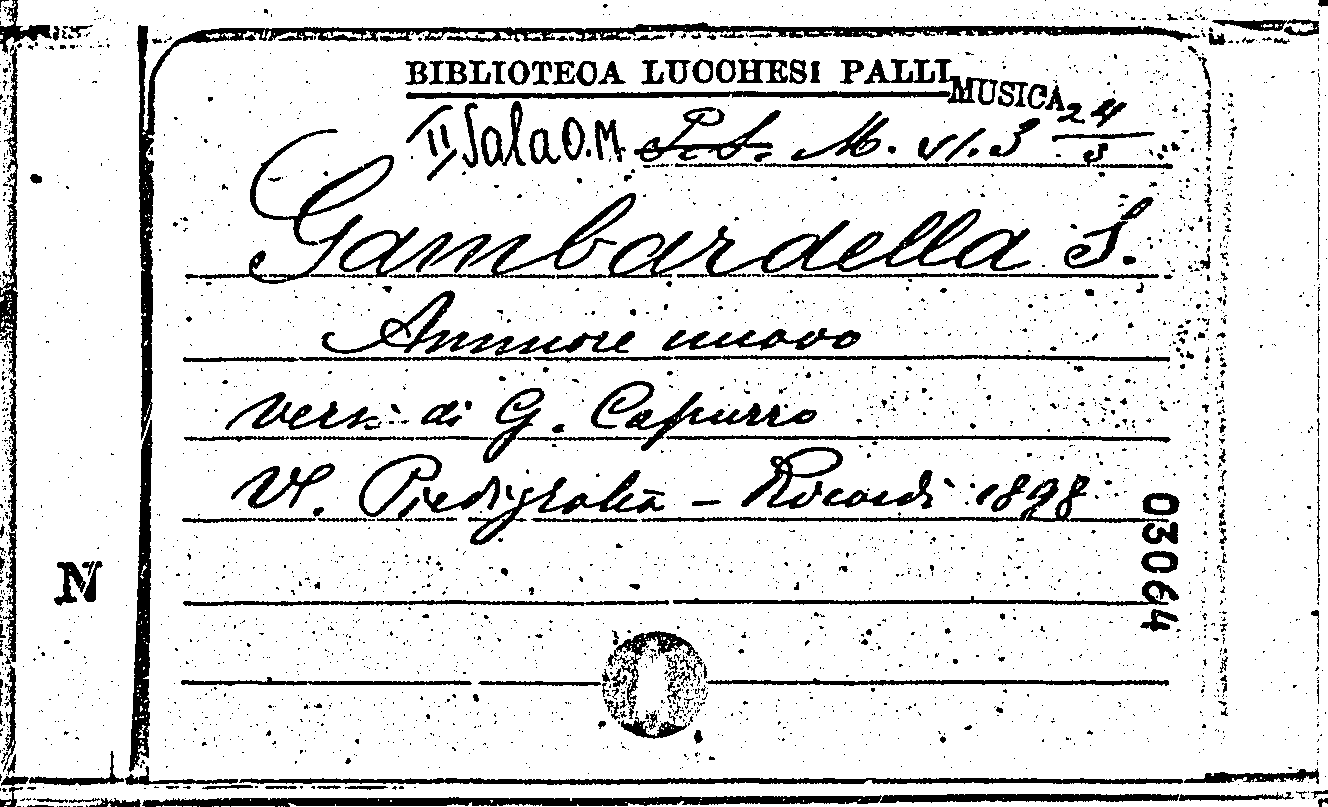 BIBLIOTECA LUCCHESI PALLI
MUSICA
II Sala O.M. P.S. M. VI. 3 24/3
Gambardella S.
Ammore nuovo
versi di G. Capurro
Vl. Piedigrotta - Ricordi 1898
03064
N